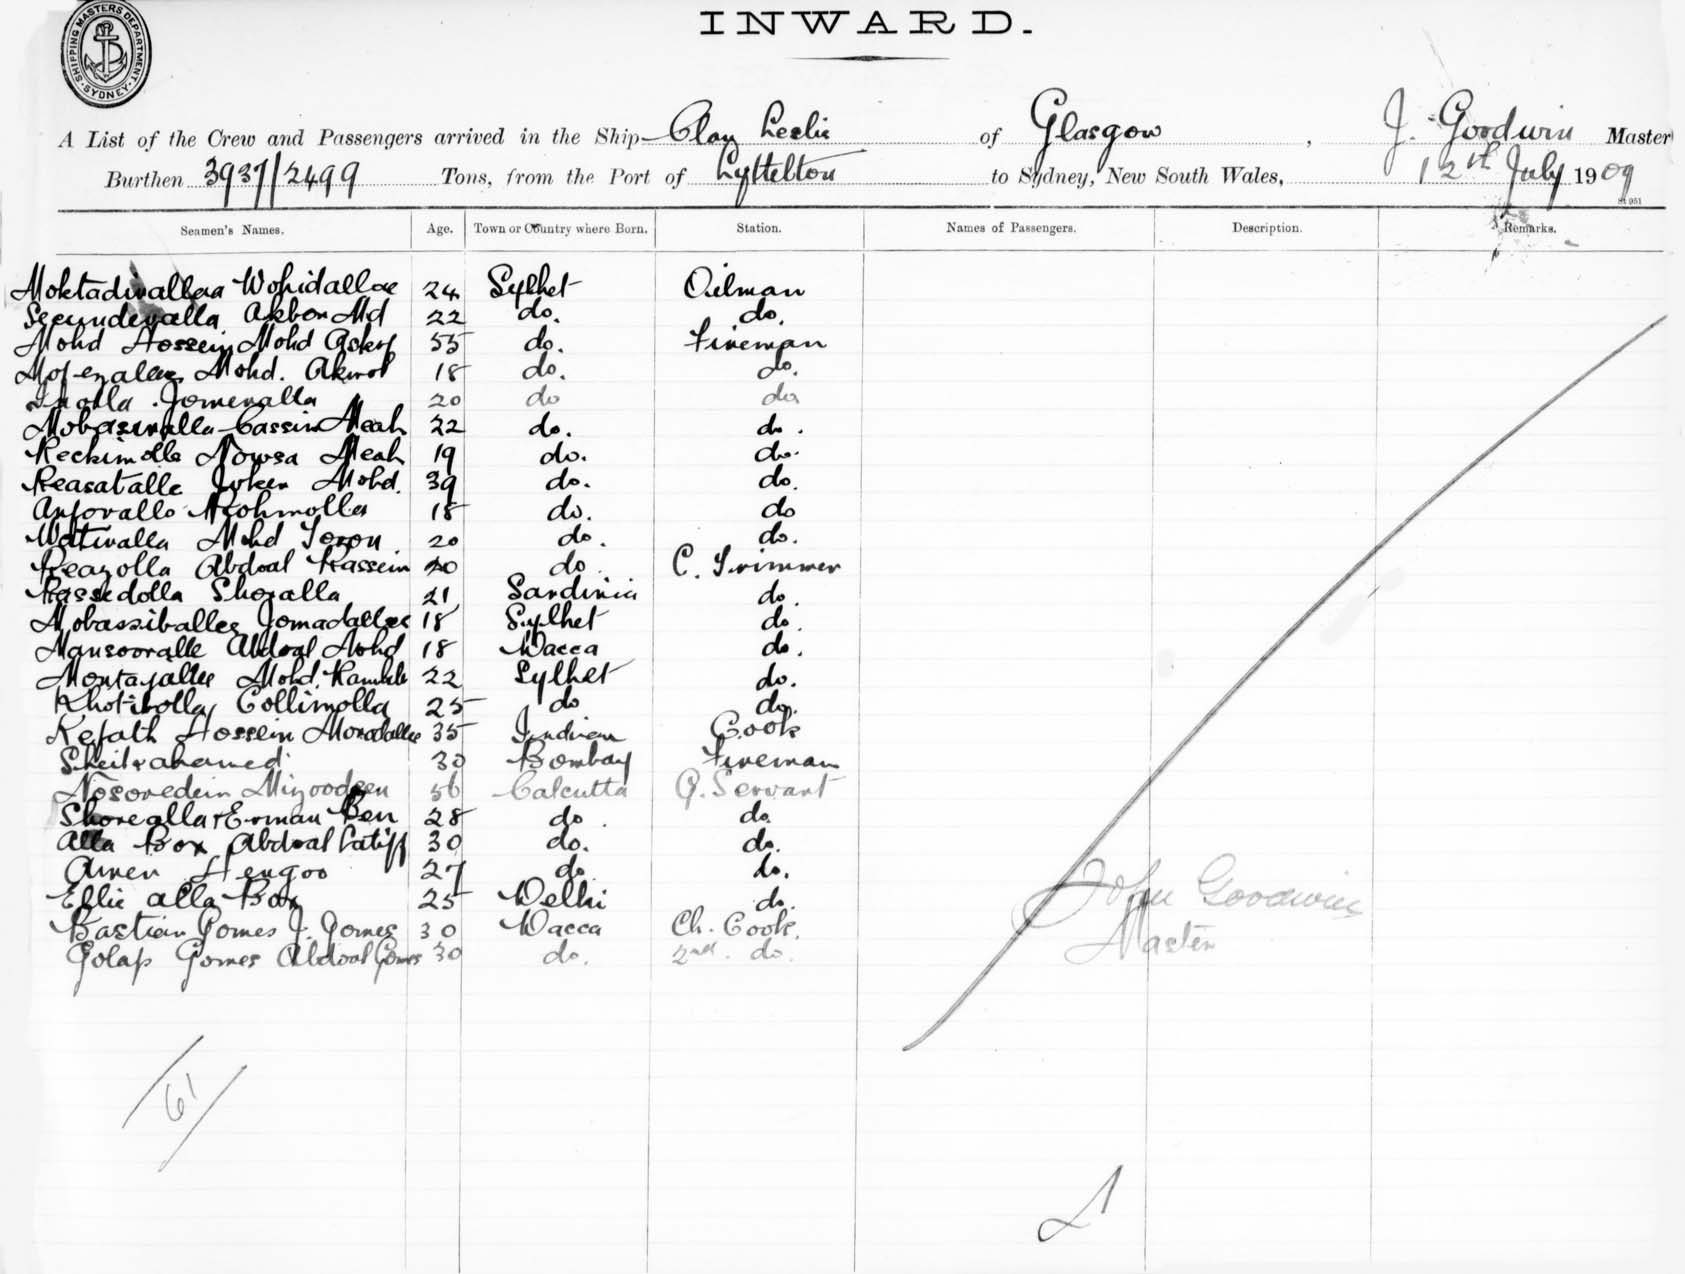 SHIPPING MASTERS DEPARTMENT. SYDNEY
INWARD.
A List of the Crew and Passengers arrived in the Ship Clan Leslie of Glasgow, J. Goodwin Master
Burthen 3937/2499 Tons, from the Port of Lyttelton to Sydney, New South Wales, 12th July 1909
St 951
Seamen's Names. Age. Town or Country where Born. Station. Names of Passengers. Description. Remarks.
Wohidallae 24 Sylhet Oilman
Akbon Md 22 do. do.
Mohd Hossein Mohd 55 do. Fireman
Mohd. 18 do. do.
Jomeralla 20 do do
Cassim Meah 22 do. do.
Nowsa Meah 19 do. do.
Reasatalle Joker Mohd. 39 do. do.
18 do. do
Mohd 20 do. do.
Reazolla Abdoal Kassein 20 do C. Trimmer
Kassedolla Shoralla 21 Sardinia do.
Mobassiballee Jomadallee 18 Sylhet do.
Mansooralle Abdoal Mohd 18 Dacca do.
Mohd. 22 Sylhet do.
Khotibolla Collimolla 25 do do.
Kefath Hossein Moradallee 35 Indian Cook
30 Bombay Fireman
Nosoredein Mizoodeen 56 Calcutta G. Servant
Ben 28 do. do.
Alla Box Abdoal Latiff 30 do. do.
Amen Hengoo 27 do. do.
Ellie alla Box 25 Delhi do.
Bastian Gomes J. Gomes 30 Dacca Ch. Cook.
Golap Gomes Abdoal Gomes 30 do. 2nd. do.
John Goodwin
Master
61